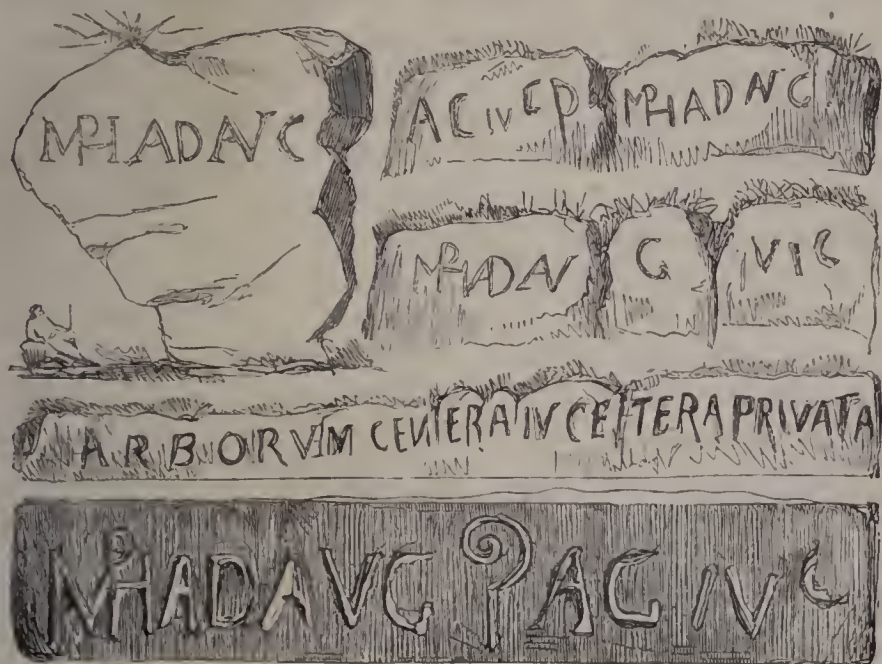 MPHADAVC
ACIVCP MPHADAVC
MPHADAV G IVIC
ARBORVM CENERA IV CETERA PRIVATA
MPHADAVG AG IVC